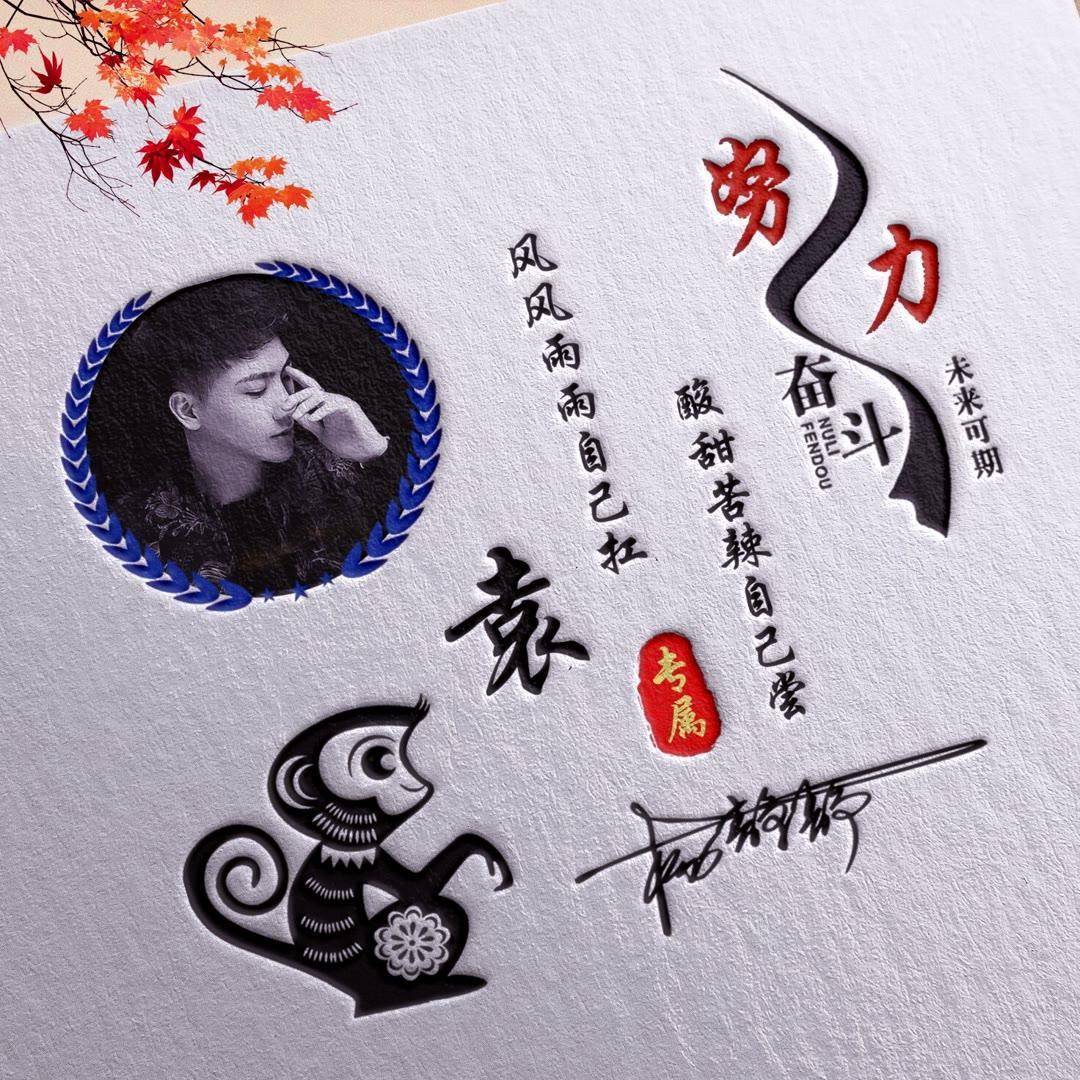 努力
奋斗
NULI
FENDOU
未来可期
风风雨雨自己扛
酸甜苦辣自己尝
袁
专属